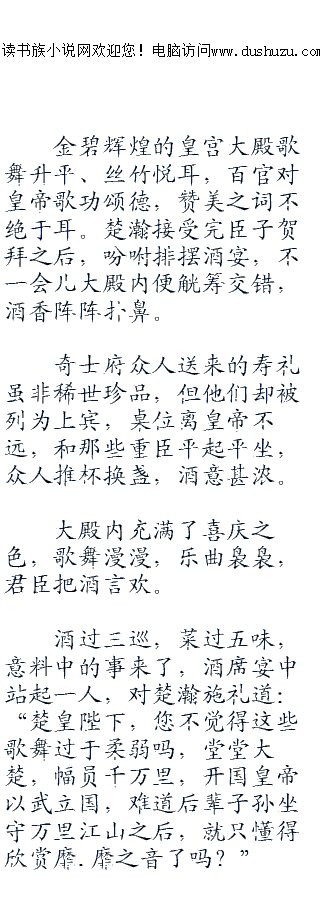 读书族小说网欢迎您！电脑访问www.dushuzu.com
金碧辉煌的皇宫大殿歌
舞升平、丝竹悦耳，百官对
皇帝歌功颂德，赞美之词不
绝于耳。楚瀚接受完臣子贺
拜之后，吩咐排摆酒宴，不
一会儿大殿内便觥筹交错，
酒香阵阵扑鼻。
奇士府众人送来的寿礼
虽非稀世珍品，但他们却被
列为上宾，桌位离皇帝不
远，和那些重臣平起平坐，
众人推杯换盏，酒意甚浓。
大殿内充满了喜庆之
色，歌舞漫漫，乐曲袅袅，
君臣把酒言欢。
酒过三巡，菜过五味，
意料中的事来了，酒席宴中
站起一人，对楚瀚施礼道：
“楚皇陛下，您不觉得这些
歌舞过于柔弱吗，堂堂大
楚，幅员千万里，开国皇帝
以武立国，难道后辈子孙坐
守万里江山之后，就只懂得
欣赏靡.靡之音了吗？”